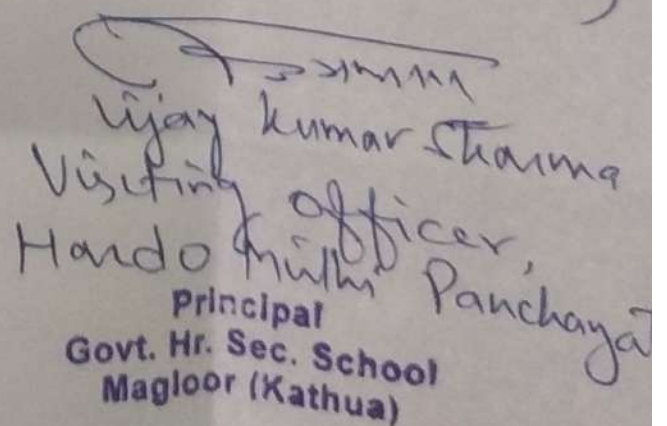 Vijay Kumar Sharma
Visiting officer,
Hando Panchayat
Principal
Govt. Hr. Sec. School
Magloor (Kathua)